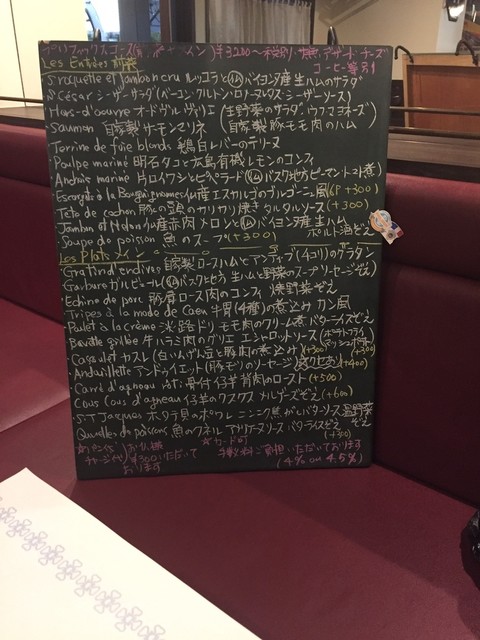 プリフィックスコース(前.メイン) ¥3200〜税別
デザート チーズ
コーヒー等別
Les Entrées 前菜
S. roquette et Jambon cru ルッコラと バイヨンヌ産生ハムのサラダ
César シーザーサラダ (ベーコン・クルトン・ロメーヌレタス・シーザーソース)
Hors-d'oeuvre オードヴル ヴァリエ (生野菜のサラダ ウフマヨネーズ)
Saumon 自家製サーモンマリネ (自家製豚モモ肉のハム
Terrine de foie blonds 鶏白レバーのテリーヌ
Poulpe mariné 明石タコと広島有機レモンのコンフィ
Anchois mariné 片口イワシとピペラード バスク地方ピーマントマト煮)
Escargots à la Bourguignonne 仏産エスカルゴのブルゴーニュ風 6P +300)
Tete de cochon 豚の頭のカリカリ焼き タルタルソース (+300)
Jambon et Melon 仏産赤肉メロンと バイヨンヌ産生ハム
ポルト酒ぞえ
Soupe de poisson 魚のスープ (+300)
Les Plats メイン
Gratin d'endives 自家製ロースハムとアンディブ (チコリ)のグラタン
Garbure ガルビュール (バスクセカラ 生ハムと野菜のスープ ソーセージぞえ)
Echine de porc 豚肩ロース肉のコンフィ 焼野菜ぞえ
Tripes à la mode de Caen 牛胃(4種)の煮込み カン風
Poulet à la crème 淡路ドリ モモ肉のクリーム煮 バターライスぞえ
Bavette grillée 牛ハラミ肉のグリエ エシャロットソース (ポテトフライ
Cassoulet カスレ (白いんげん豆と豚肉の煮込み) (+300)
Andouillette アンドゥイエット (豚モツのソーセージ) クセあり (+400)
Carré d'agneau 骨付仔羊背肉のロースト (+500)
Cous Cous d'agneau 仔羊のクスクス メルゲーズぞえ (+600)
S.T Jacques ホタテ貝のポワレ ニンニク焦がしバターソース 温野菜
ぞえ
Quenelles de poissons 魚のクネル アメリケーヌソース バターライスぞえ
☆カード可
手数料ご負担いただいております
(4% ou 4.5%)
チャージ(パン代) ¥300いただいて
おります